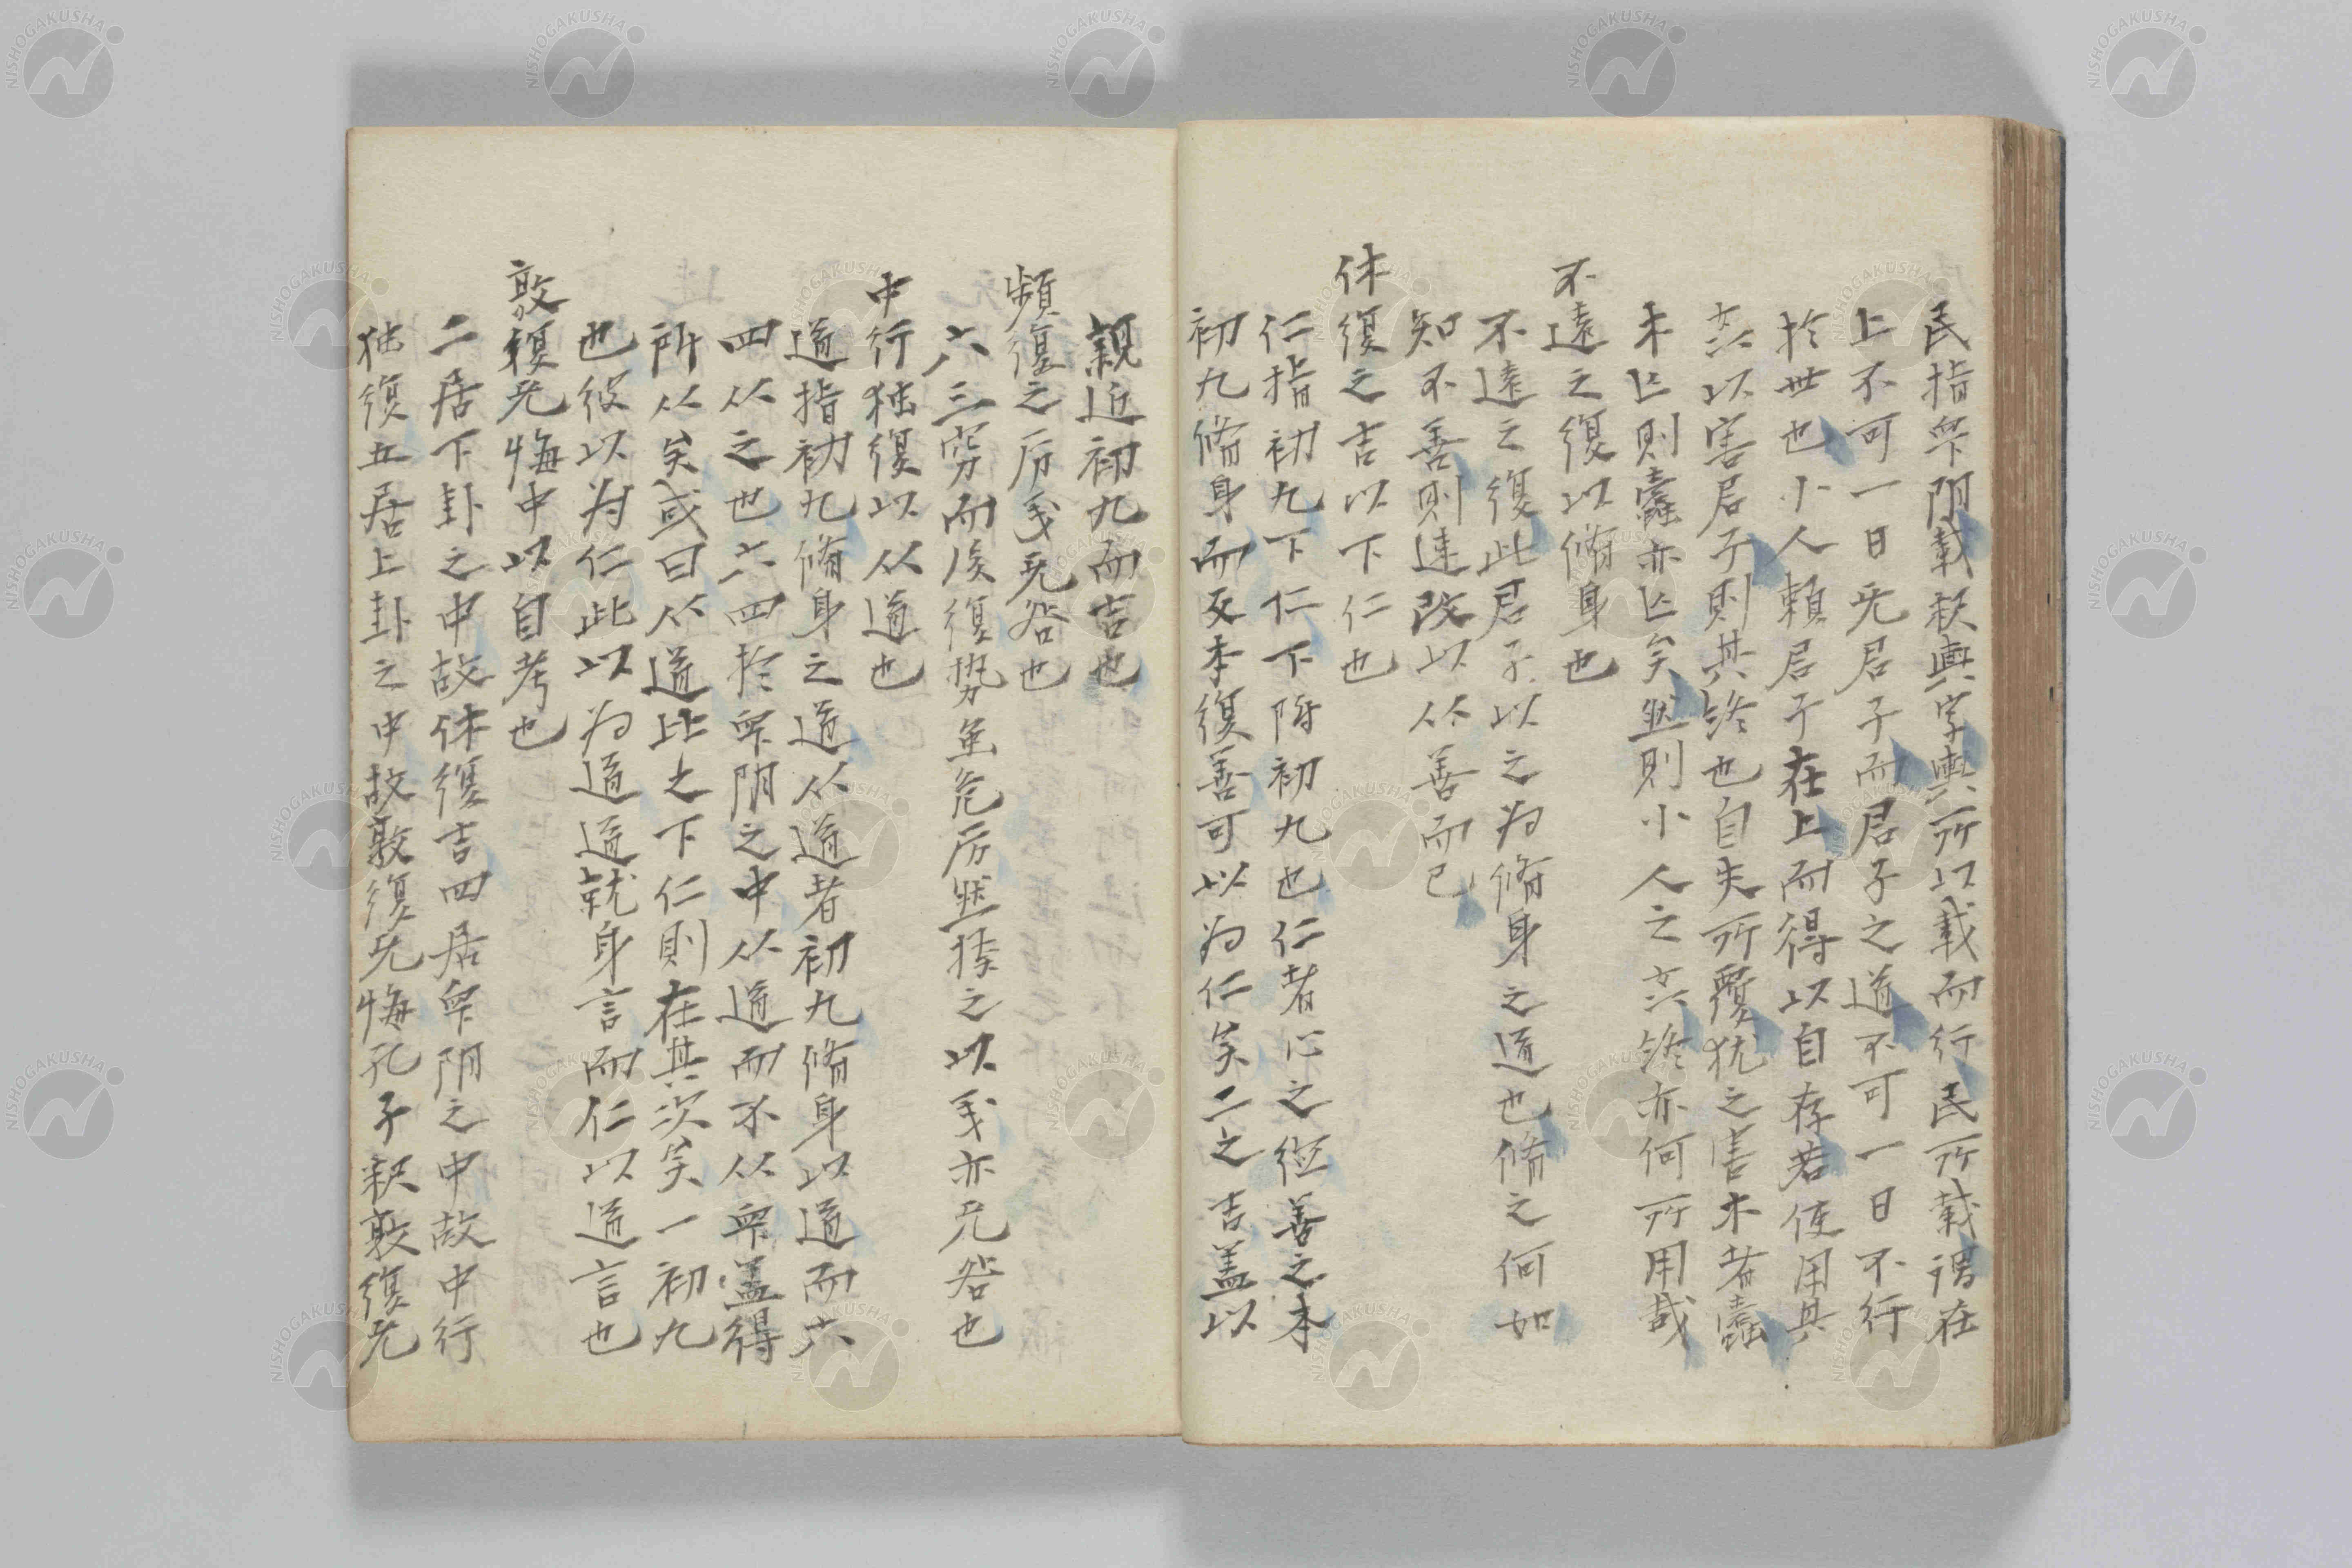 民指衆阴載釈輿字輿所以載而行民所載謂在
上不可一日无君子而君子之道不可一日不行
扵世也小人頼君子在上而得以自存若使用其
以害君子則其終也自失所覆犹之害木者蠹
木亡則蠹亦亡矣然則小人之終亦何所用哉
不遠之復以脩身也
不遠之復此君子以之为脩身之道也脩之何如
知不善則速改以从善而已
休復之吉以下仁也
仁指初九下仁下陟初九也仁者心之徳善之本
初九脩身而反本復善可以为仁矣二之吉盖以
親近初九而吉也
頻復之厉义无咎也
六三穷而后復势虽危厉然揆之以义亦无咎也
中行独復以从道也
道指初九脩身之道从道者初九脩身以道而六
四从之也六四扵衆阴之中从道而不从衆盖得
所从矣或曰从道比之下仁則在其次矣一初九
也彼以为仁此以为道道就身言而仁以道言也
敦復无悔中以自考也
二居下卦之中故休復吉四居衆阴之中故中行
独復五居上卦之中故敦復无悔孔子釈敦復无
NISHOGAKUSHA